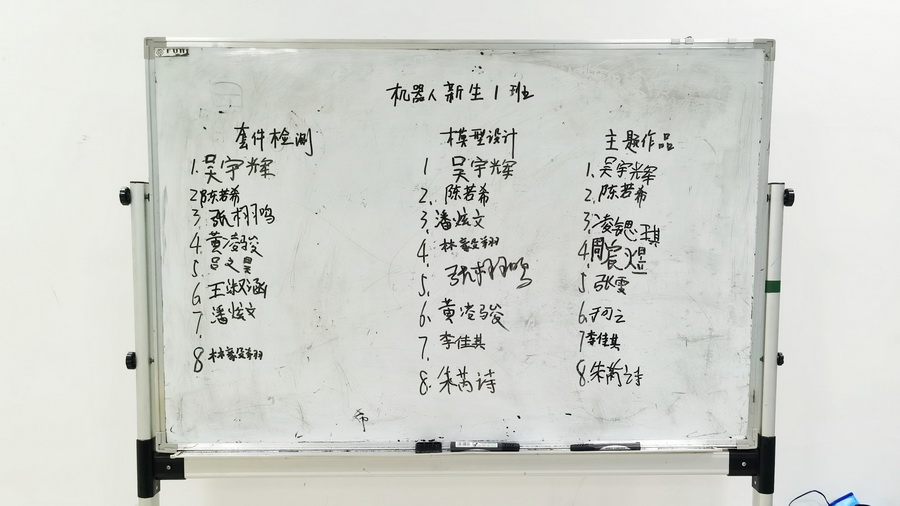 机器人新生1班
套件检测
1.吴宇辉
2.陈若希
3.张栩鸣
4.黄凌骏
5.吕之昊
6.王淑涵
7.潘炫文
8.林毅翔
模型设计
1 吴宇辉
2.陈若希
3.潘炫文
4.林毅翔
5.张栩鸣
6.黄凌骏
7.李佳其
8.朱芮诗
主题作品
1.吴宇辉
2.陈若希
3.凌锶琪
4.周宸煜
5.张雯
6.
7.李佳其
8.朱芮诗